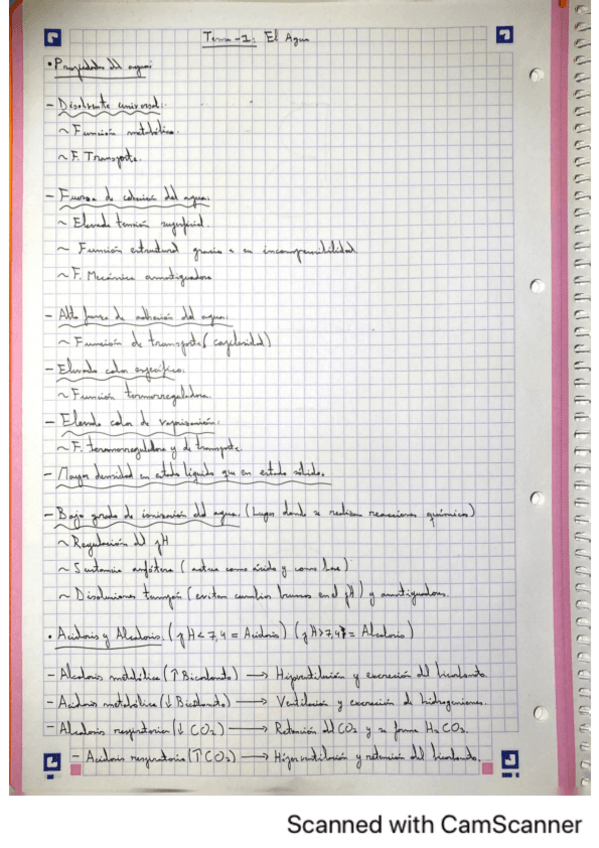 Tema -1: El Agua
• Propiedades del agua:
- Disolvente universal:
~ Función metabólica.
~ F. Transporte.
- Fuerza de cohesión del agua:
~ Elevada tensión superficial.
~ Función estructural gracias a su incompresibilidad
~ F. Mecánica amortiguadora
- Alta fuerza de adhesión del agua:
~ Función de transporte (capilaridad)
- Elevado calor específico.
~ Función termorreguladora.
- Elevado calor de vaporización:
~ F. termorreguladora y de transporte.
- Mayor densidad en estado líquido que en estado sólido.
- Bajo grado de ionización del agua. (Lugar donde se realizan reacciones químicas)
~ Regulación del pH
~ Sustancia anfótera (actúa como ácido y como base)
~ Disoluciones tampón (evitan cambios bruscos en el pH) y amortiguadoras.
• Acidosis y Alcalosis. (pH < 7,4 = Acidosis) (pH > 7,4 = Alcalosis)
- Alcalosis metabólica (↑ Bicarbonato) → Hipoventilación y excreción del bicarbonato.
- Acidosis metabólica (↓ Bicarbonato) → Ventilación y excreción de hidrogeniones.
- Alcalosis respiratoria (↓ CO₂) → Retención del CO₂ y se forma H₂CO₃.
- Acidosis respiratoria (↑ CO₂) → Hiperventilación y retención del bicarbonato.
Scanned with CamScanner